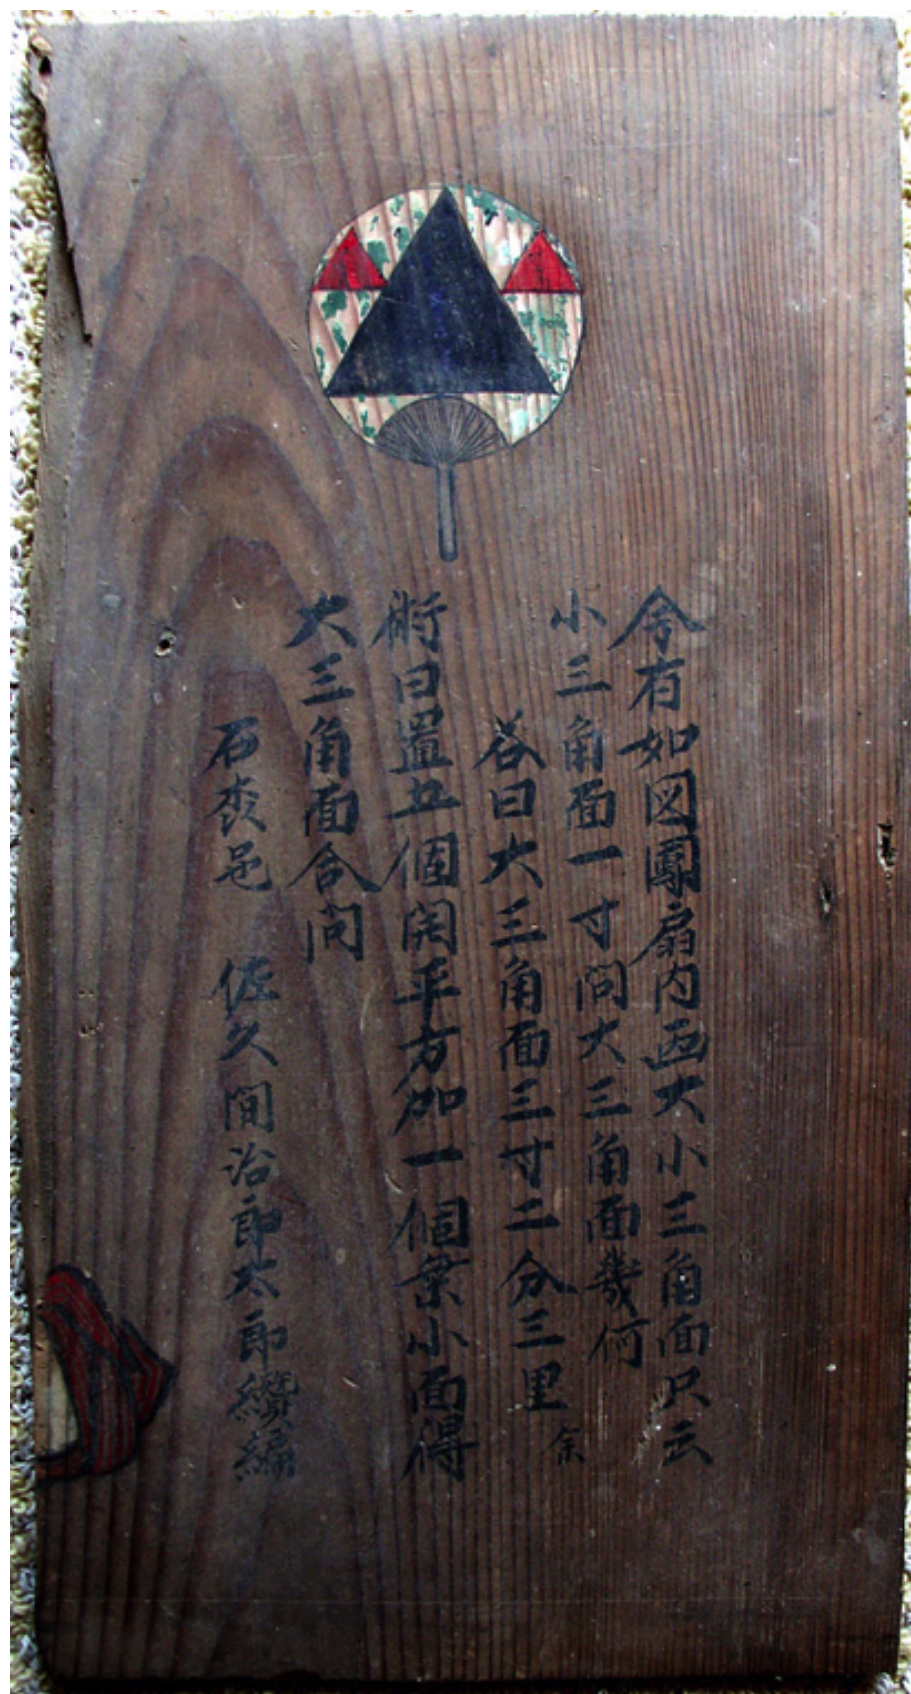 今有如図團扇内画大小三角面只云
小三角面一寸問大三角面幾何
答曰大三角面三寸二分三里余
術曰置五個開平方加一個乗小面得
大三角面合問
石森邑 佐久間治郎太郎纉編